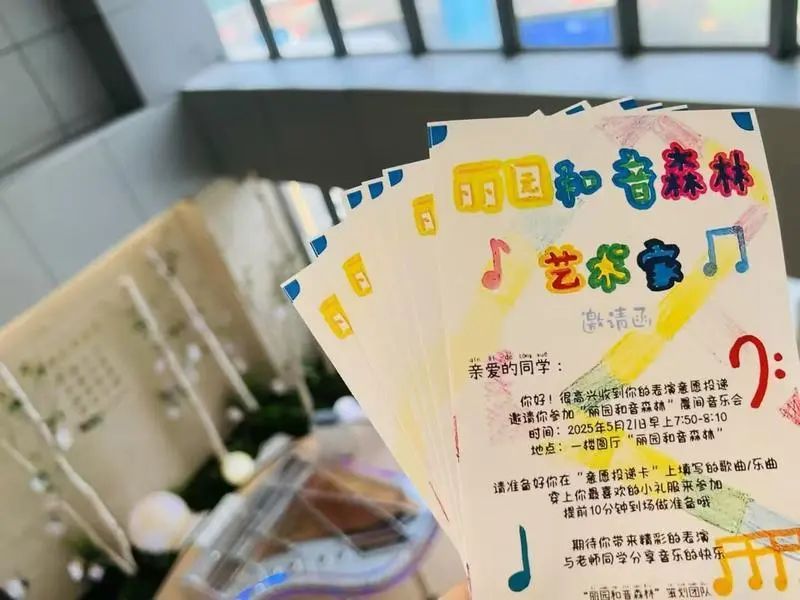 丽园和音森林
艺术家
邀请函
qīn ài de tóng xué
亲爱的同学：
你好！很高兴收到你的表演意愿投递
邀请你参加“丽园和音森林”晨间音乐会
时间：2025年5月21日早上7:50-8:10
地点：一楼圆厅“丽园和音森林”
请准备好你在“意愿投递卡”上填写的歌曲/乐曲
穿上你最喜欢的小礼服来参加
提前10分钟到场做准备哦
期待你带来精彩的表演
与老师同学分享音乐的快乐
“丽园和音森林”策划团队